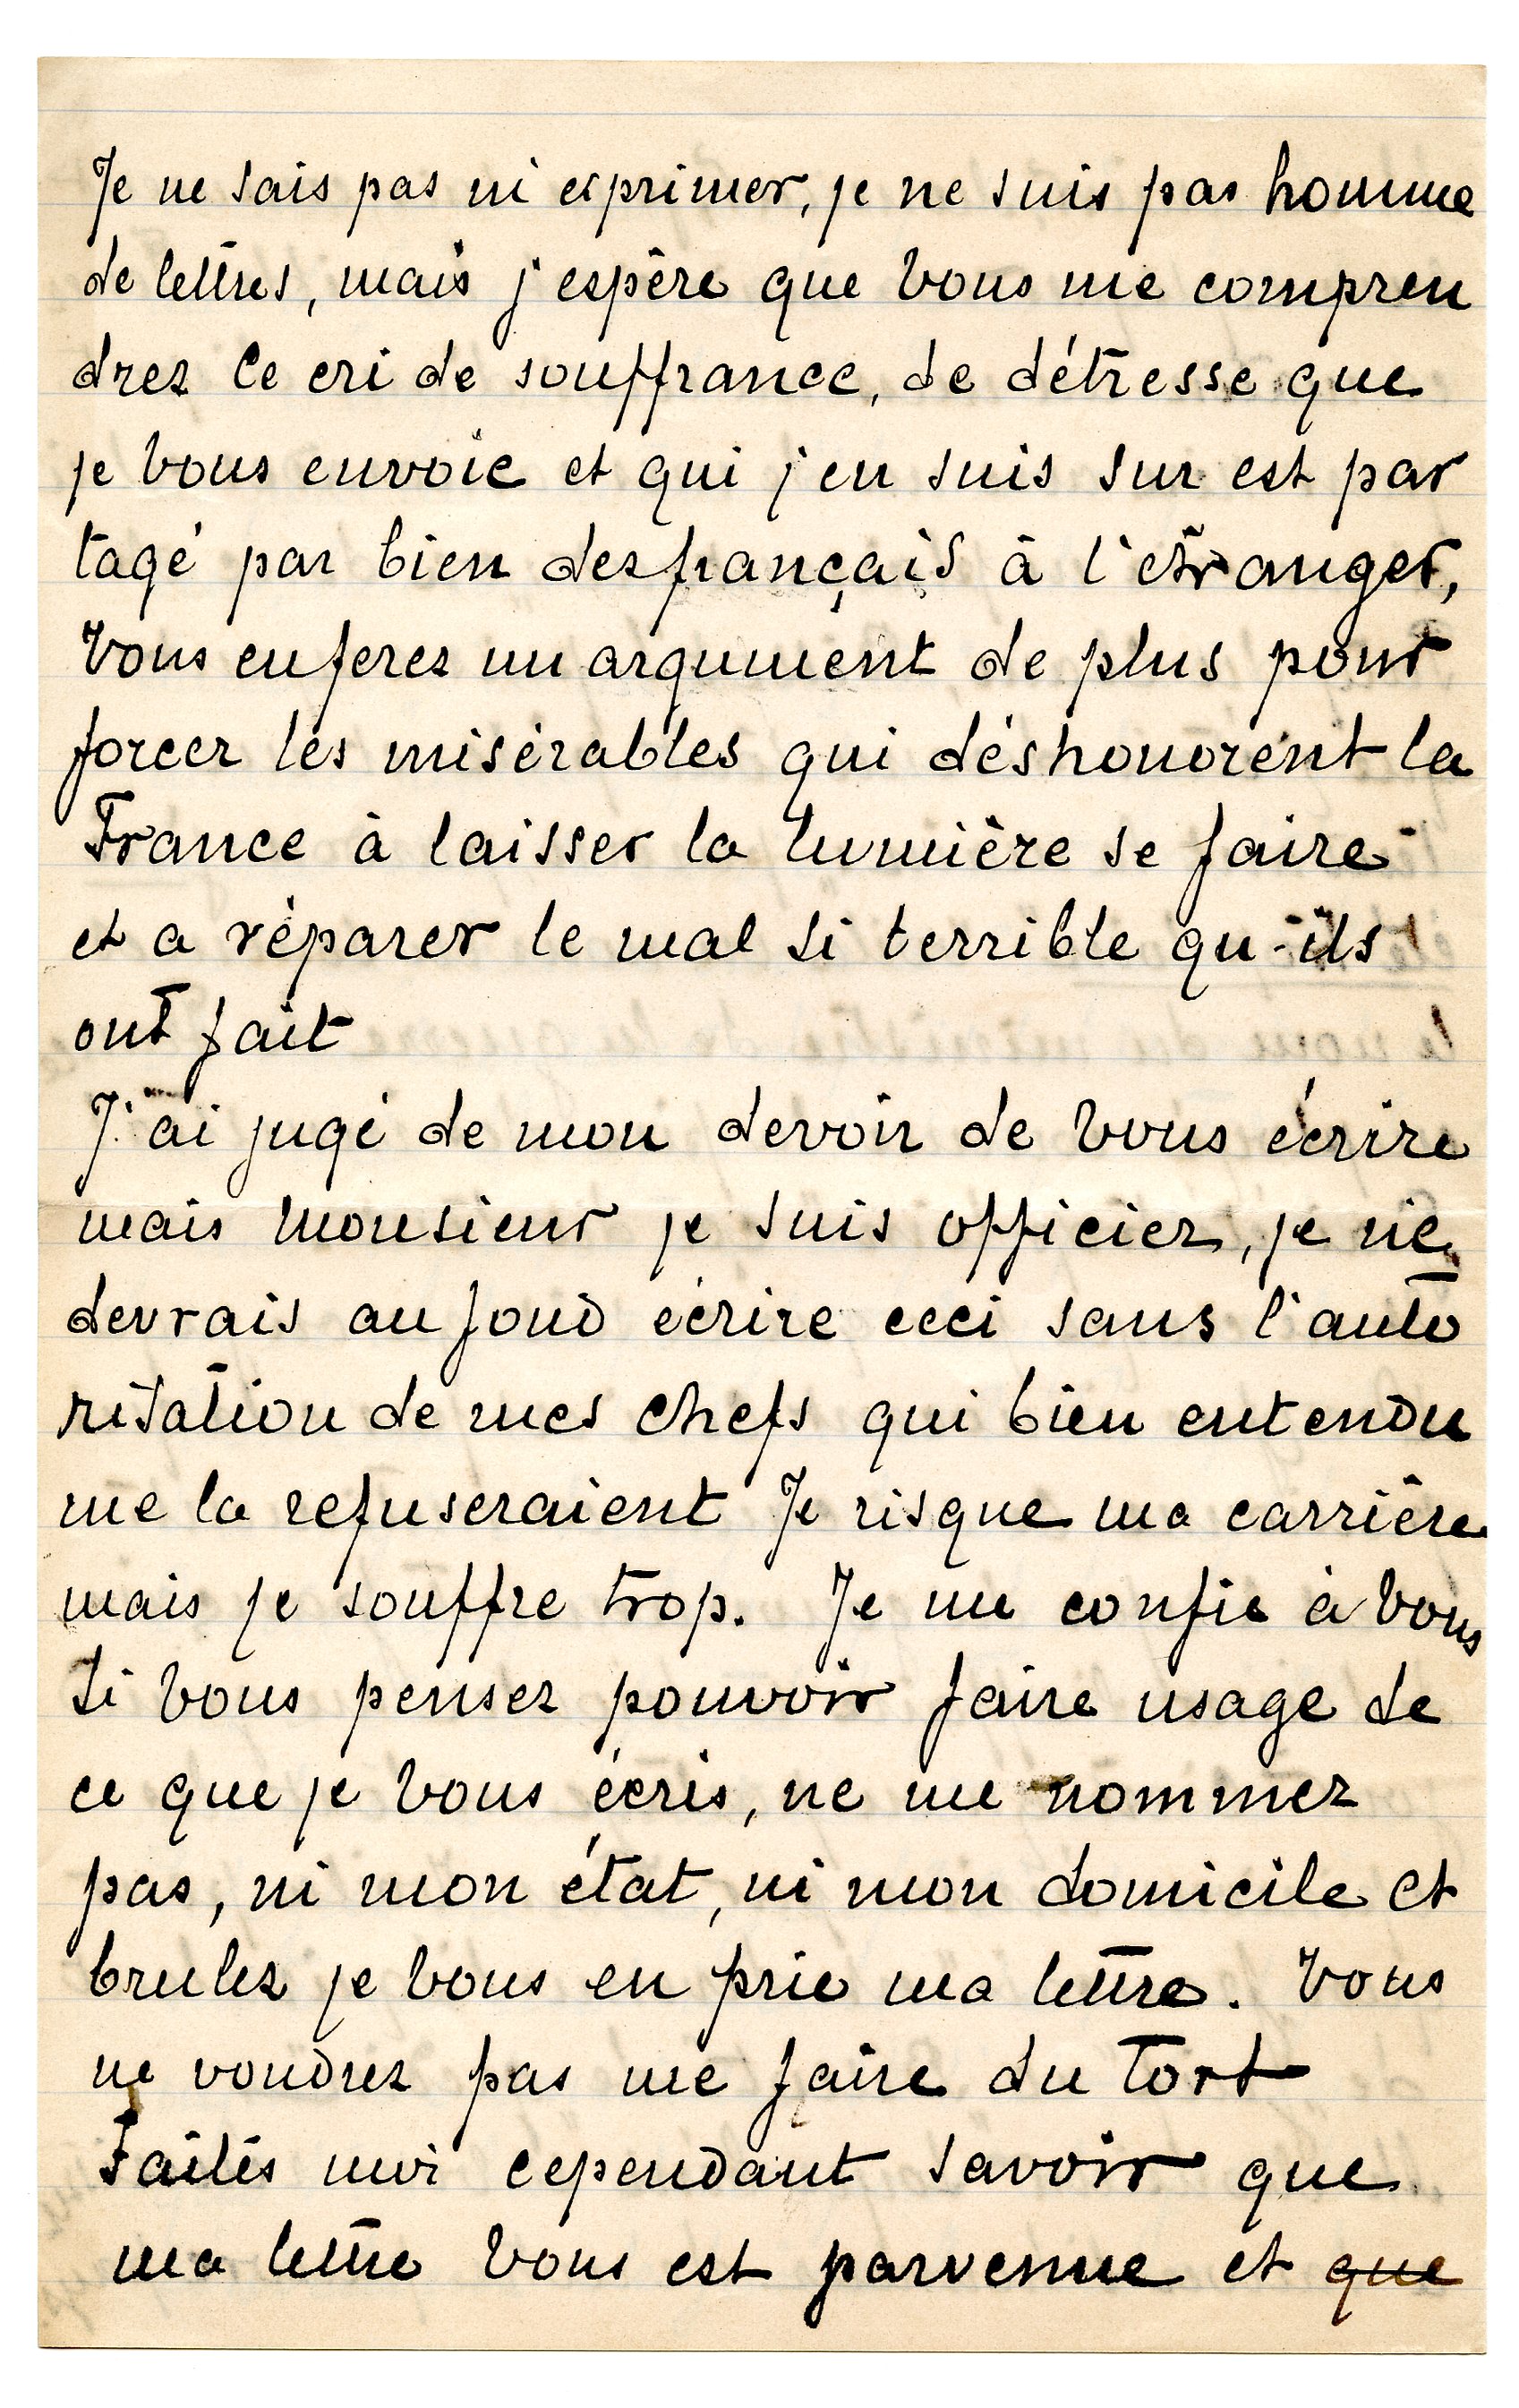 Je ne sais pas m'exprimer, je ne suis pas homme
de lettres, mais j'espère que vous me compren
drez Ce cri de souffrance, de détresse que
je vous envoie et qui j'en suis sur est par
tagé par bien des français à l'étranger,
Vous en ferez un argument de plus pour
forcer les misérables qui déshonorent la
France à laisser la lumière se faire
et a réparer le mal si terrible qu'ils
ont fait
J'ai jugé de mon devoir de vous écrire
mais Monsieur je suis officier, je ne
devrais au fond écrire ceci sans l'auto
risation de mes chefs qui bien entendu
me la refuseraient Je risque ma carrière
mais je souffre trop. Je me confie à vous
Si vous pensez pouvoir faire usage de
ce que je vous écris, ne me nommez
pas, ni mon état, ni mon domicile et
brulez je vous en prie ma lettre. Vous
ne voudrez pas me faire du tort
Faites moi cependant savoir que
ma lettre vous est parvenue et que